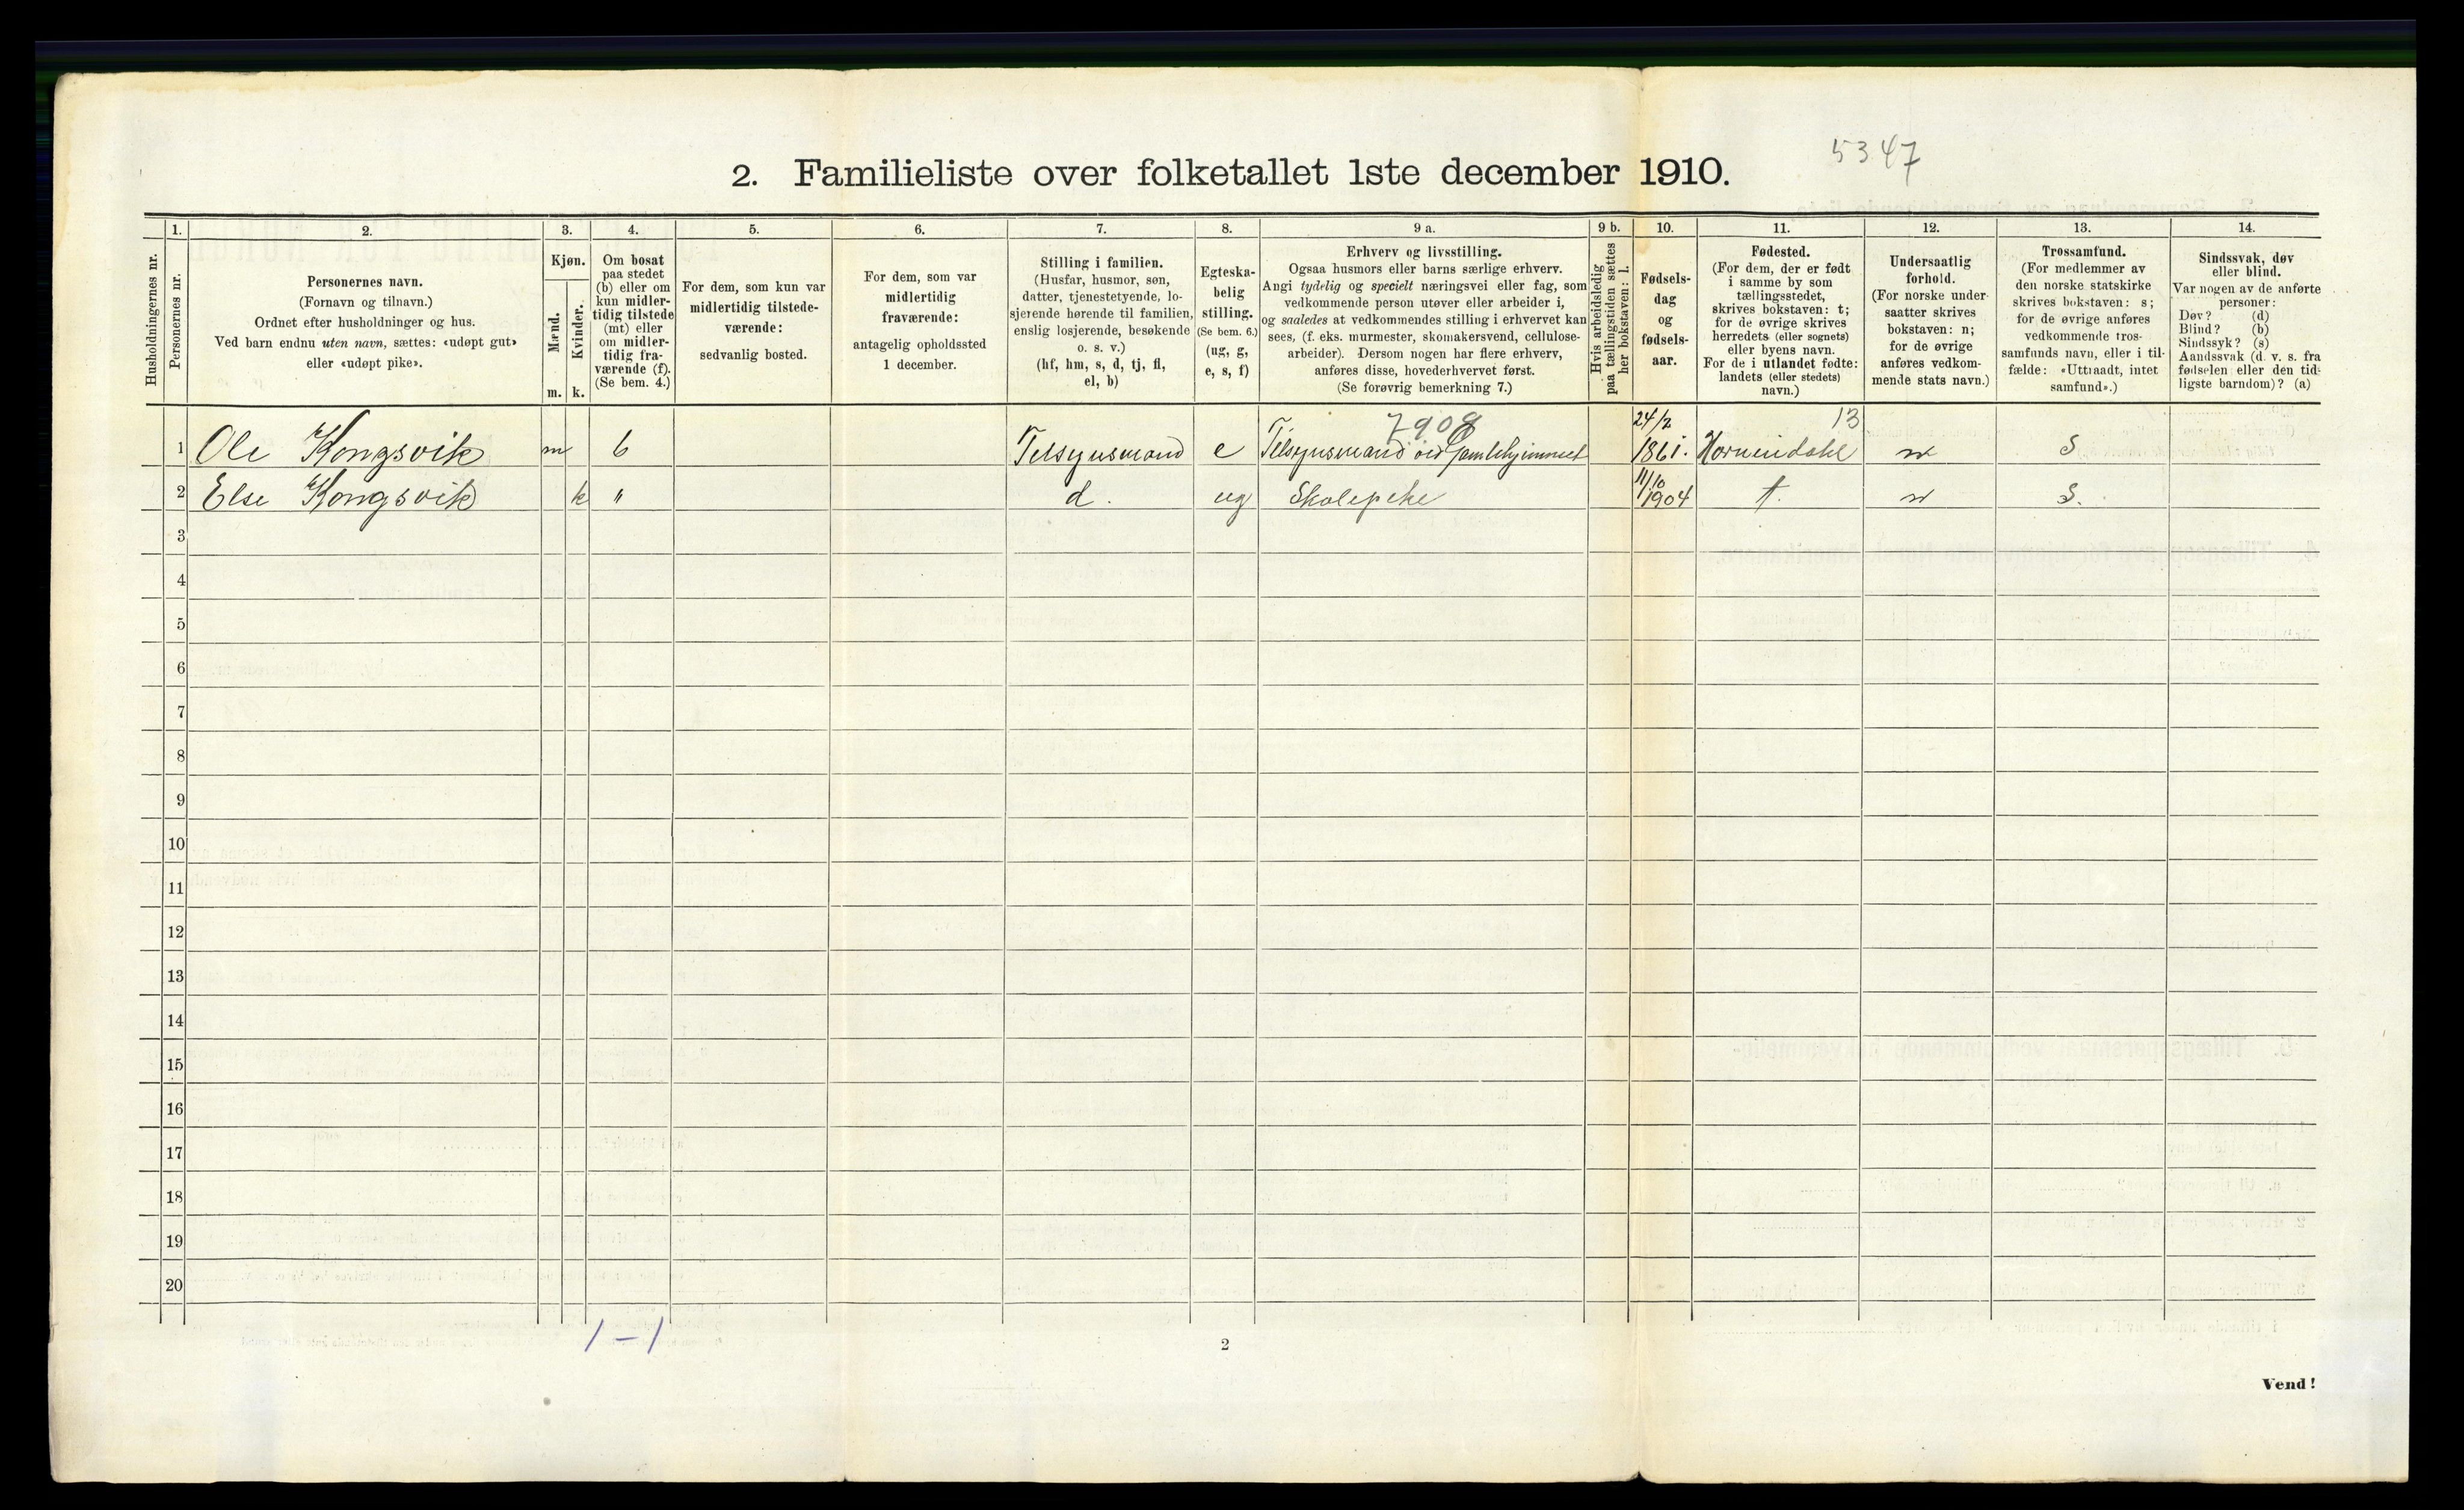 5347
2. Familieliste over folketallet 1ste december 1910.
1. 2. 3. 4. 5. 6. 7. 8. 9 a. 9 b. 10. 11. 12. 13. 14.
Husholdningernes nr.
Personernes nr.
Personernes navn.
(Fornavn og tilnavn.)
Ordnet efter husholdninger og hus.
Ved barn endnu uten navn, sættes: «udøpt gut»
eller «udøpt pike».
Kjøn.
Mænd.
Kvinder.
m. k.
Om bosat
paa stedet
(b) eller om
kun midler-
tidig tilstede
(mt) eller
om midler-
tidig fra-
værende (f).
(Se bem. 4.)
For dem, som kun var
midlertidig tilstede-
værende:
sedvanlig bosted.
For dem, som var
midlertidig
fraværende:
antagelig opholdssted
1 december.
Stilling i familien.
(Husfar, husmor, søn,
datter, tjenestetyende, lo-
sjerende hørende til familien,
enslig losjerende, besøkende
o. s. v.)
(hf, hm, s, d, tj, fl,
el, b)
Egteska-
belig
stilling.
(Se bem. 6.)
(ug, g,
e, s, f)
Erhverv og livsstilling.
Ogsaa husmors eller barns særlige erhverv.
Angi tydelig og specielt næringsvei eller fag, som
vedkommende person utøver eller arbeider i,
og saaledes at vedkommendes stilling i erhvervet kan
sees, (f. eks. murmester, skomakersvend, cellulose-
arbeider). Dersom nogen har flere erhverv,
anføres disse, hovederhvervet først.
(Se forøvrig bemerkning 7.)
Hvis arbeidsledig
paa tællingstiden sættes
her bokstaven: l.
Fødsels-
dag
og
fødsels-
aar.
Fødested.
(For dem, der er født
i samme by som
tællingsstedet,
skrives bokstaven: t;
for de øvrige skrives
herredets (eller sognets)
eller byens navn.
For de i utlandet fødte:
landets (eller stedets)
navn.)
Undersaatlig
forhold.
(For norske under-
saatter skrives
bokstaven: n;
for de øvrige
anføres vedkom-
mende stats navn.)
Trossamfund.
(For medlemmer av
den norske statskirke
skrives bokstaven: s;
for de øvrige anføres
vedkommende tros-
samfunds navn, eller i til-
fælde: «Uttraadt, intet
samfund».)
Sindssvak, døv
eller blind.
Var nogen av de anførte
personer:
Døv? (d)
Blind? (b)
Sindssyk? (s)
Aandssvak (d. v. s. fra
fødselen eller den tid-
ligste barndom)? (a)
7908 24/2 13
1 Ole Kongsvik m b Tilsynsmand e Tilsynsmand ved Gamlehjemmet 1861. Hornindahl n S
11/10
2 Else Kongsvik k " d. ug Skolepike 1904 t. n S.
3
4
5
6
7
8
9
10
11
12
13
14
15
16
17
18
19
20
1 - 1
2
Vend!